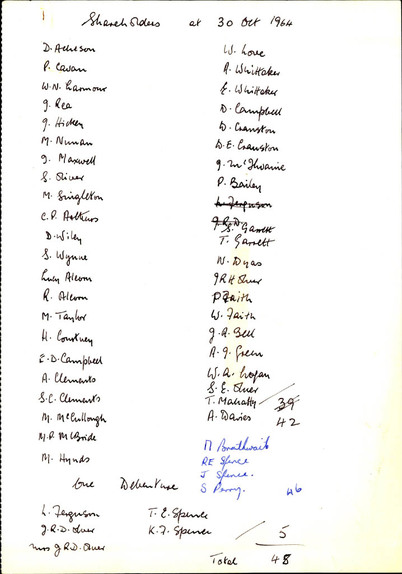 Shareholders at 30 Oct 1964
D. Acheson
P. Cavan
W.N. Larmour
G. Rea
G. Hickey
M. Nunan
G. Maxwell
S. Oliver
M. Singleton
C.P. Arthurs
D. Wiley
S. Wynne
Lucy Alcorn
R. Alcorn
M. Taylor
H. Courtney
E.D. Campbell
A. Clements
S.C. Clements
M. McCullough
M.P. McBride
M. Hynds
W. Love
A. Whittaker
E. Whittaker
D. Campbell
D. Cranston
W.E. Cranston
G. McIlwaine
P. Bailey
L. Ferguson
S. Garrett
T. Garrett
N. Dyas
JRH Oliver
P Faith
W. Faith
G.A. Bell
A.G. Green
W.A. Logan
S.E. Oliver
T. Mahaffy 39
A. Davies 42
M Braithwait
RE Spence
J Spence.
S Perry. 46
Debenture
L. Ferguson
J.R.D. Oliver
Mrs J.R.D. Oliver
T.E. Spence
K.F. Spence 5
Total 48